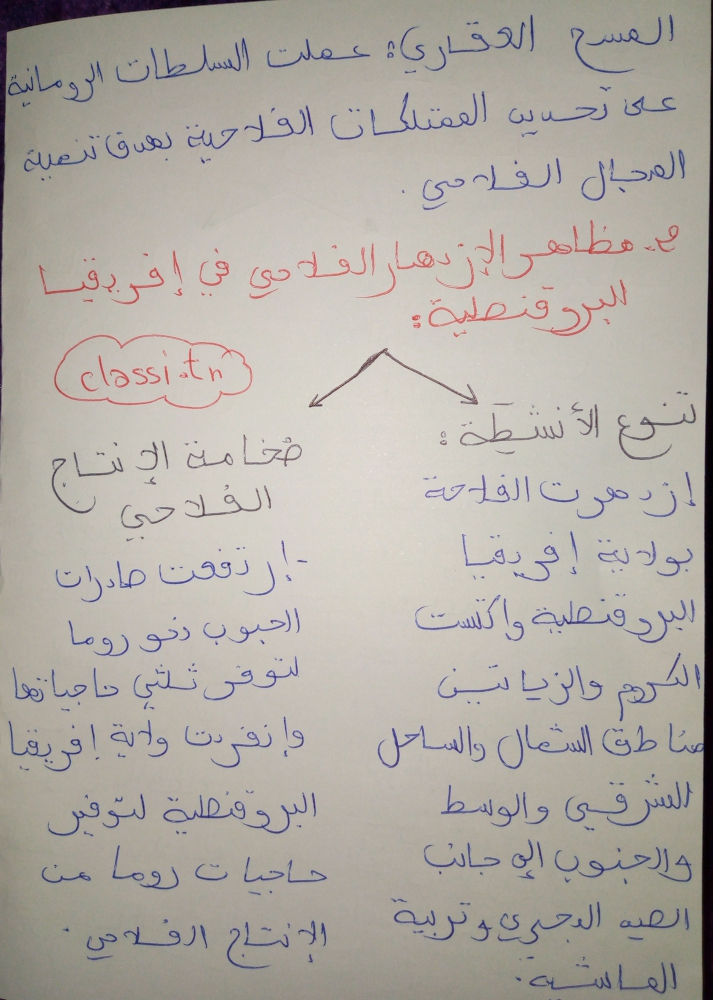 المسح العقاري: عملت السلطات الرومانية
على تحديد الممتلكات الفلاحية بهدف تنمية
المجال الفلاحي.
2. مظاهر الإزدهار الفلاحي في إفريقيا
البروقنصلية:
classi.tn
تنوع الأنشطة:
إزدهرت الفلاحة
بولاية إفريقيا
البروقنصلية واكتست
الكروم والزياتين
مناطق الشمال والساحل
الشرقي والوسط
والجنوب إلى جانب
الصيد البحري وتربية
الماشية.
ضخامة الإنتاج
الفلاحي
- إرتفعت صادرات
الحبوب نحو روما
لتوفر ثلثي حاجياتها
وإنفردت ولاية إفريقيا
البروقنصلية لتوفير
حاجيات روما من
الإنتاج الفلاحي.